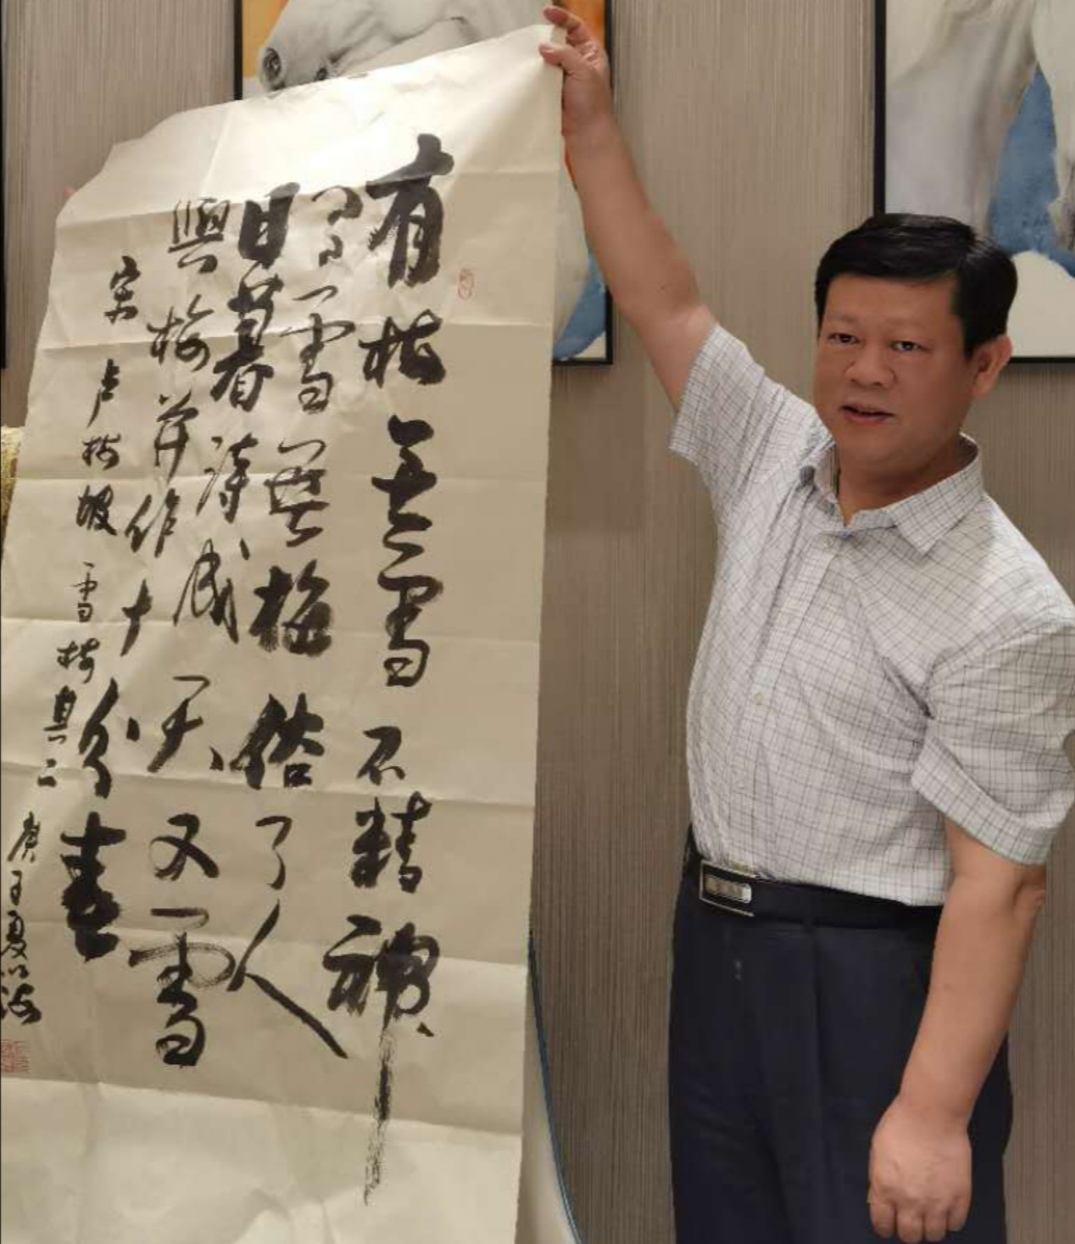 有梅無雪不精神
有雪無梅俗了人
日暮詩成天又雪
與梅并作十分春
宋卢梅坡雪梅其二
庚子夏